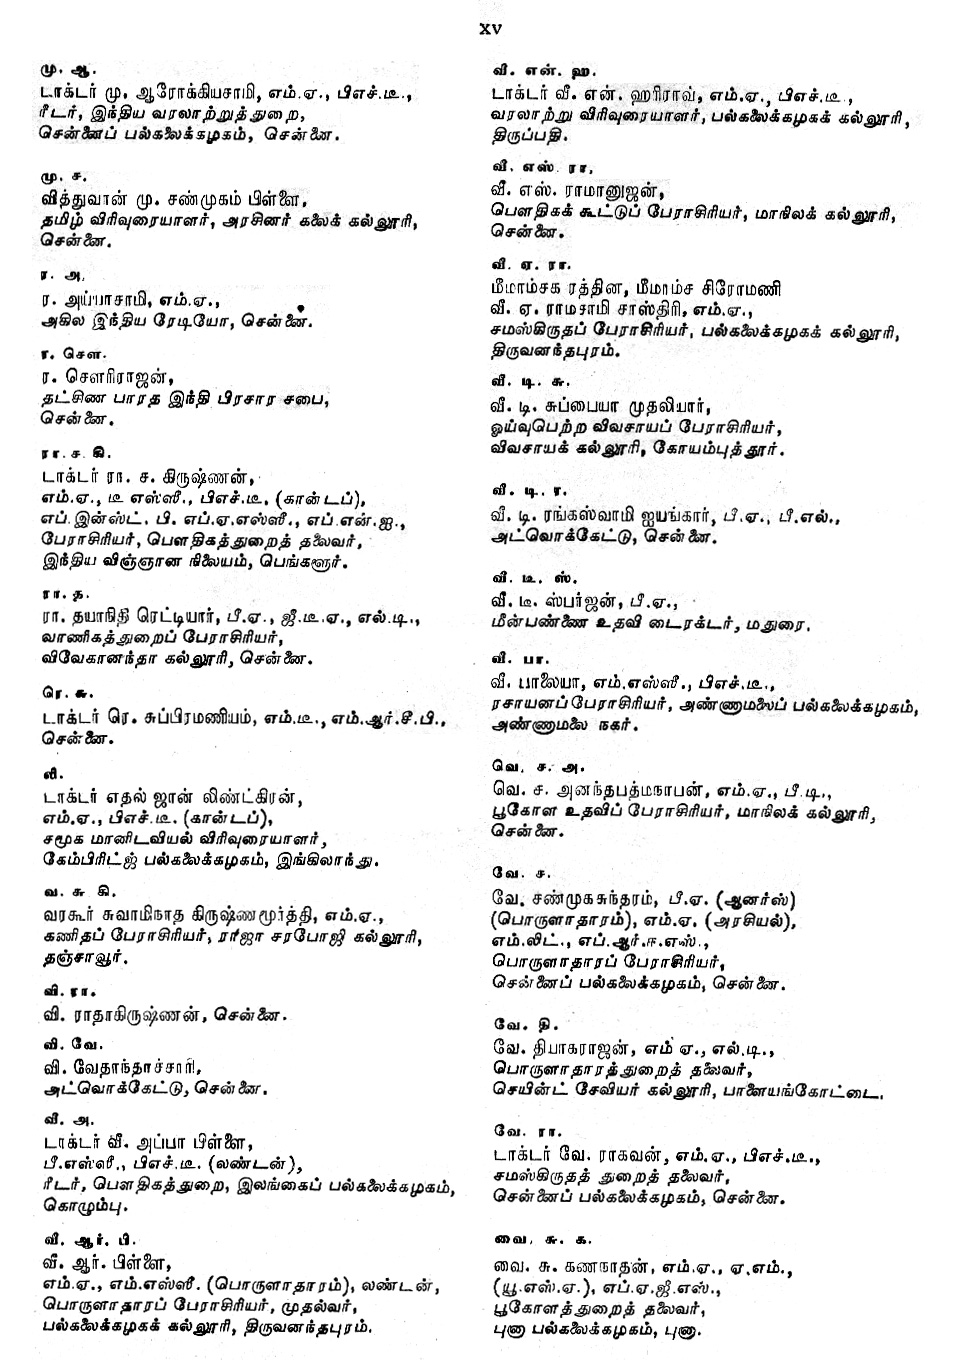 xv
மு. ஆ.
டாக்டர் மு. ஆரோக்கியசாமி, எம்.ஏ., பிஎச்.டீ.,
ரீடர், இந்திய வரலாற்றுத்துறை,
சென்னைப் பல்கலைக்கழகம், சென்னை.
மு. ச.
வித்துவான் மு. சண்முகம் பிள்ளை,
தமிழ் விரிவுரையாளர், அரசினர் கலைக் கல்லூரி,
சென்னை.
ர. அ.
ர. அய்யாசாமி, எம்.ஏ.,
அகில இந்திய ரேடியோ, சென்னை.
ர. சௌ.
ர. சௌரிராஜன்,
தட்சிண பாரத இந்தி பிரசார சபை,
சென்னை.
ரா. ச. கி.
டாக்டர் ரா. ச. கிருஷ்ணன்,
எம்.ஏ., டீ எஸ்ஸீ., பிஎச்.டீ. (கான்டப்),
எப்.இன்ஸ்ட். பி. எப்.ஏ.எஸ்ஸீ., எப்.என்.ஐ.,
பேராசிரியர், பௌதிகத்துறைத் தலைவர்,
இந்திய விஞ்ஞான நிலையம், பெங்களூர்.
ரா. த.
ரா. தயாநிதி ரெட்டியார், பீ.ஏ., ஜீ.டீ.ஏ., எல்.டி.,
வாணிகத்துறைப் பேராசிரியர்,
விவேகானந்தா கல்லூரி, சென்னை.
ரெ. சு.
டாக்டர் ரெ. சுப்பிரமணியம், எம்.டீ., எம்.ஆர்.சீ.பி.,
சென்னை.
லி.
டாக்டர் எதல் ஜான் லிண்ட்கிரன்,
எம்.ஏ., பிஎச்.டீ. (கான்டப்),
சமூக மானிடவியல் விரிவுரையாளர்,
கேம்பிரிட்ஜ் பல்கலைக்கழகம், இங்கிலாந்து.
வ. சு கி.
வரகூர் சுவாமிநாத கிருஷ்ணமூர்த்தி, எம்.ஏ.,
கணிதப் பேராசிரியர், ராஜா சரபோஜி கல்லூரி,
தஞ்சாவூர்.
வி. ரா.
வி. ராதாகிருஷ்ணன், சென்னை.
வி. வே.
வி. வேதாந்தாச்சாரி,
அட்வொக்கேட்டு, சென்னை.
வீ. அ.
டாக்டர் வீ. அப்பா பிள்ளை,
பீ.எஸ்ஸீ., பிஎச்.டீ. (லண்டன்),
ரீடர், பௌதிகத்துறை, இலங்கைப் பல்கலைக்கழகம்,
கொழும்பு.
வீ. ஆர். பி.
வீ. ஆர். பிள்ளை,
எம்.ஏ., எம்.எஸ்ஸீ. (பொருளாதாரம்), லண்டன்,
பொருளாதாரப் பேராசிரியர், முதல்வர்,
பல்கலைக்கழகக் கல்லூரி, திருவனந்தபுரம்.
வீ. என். ஹ.
டாக்டர் வீ. என். ஹரிராவ், எம்.ஏ., பிஎச்.டீ.,
வரலாற்று விரிவுரையாளர், பல்கலைக்கழகக் கல்லூரி,
திருப்பதி.
வீ. எஸ். ரா.
வீ. எஸ். ராமானுஜன்,
பௌதிகக் கூட்டுப் பேராசிரியர், மாநிலக் கல்லூரி,
சென்னை.
வீ. ஏ. ரா.
மீமாம்சக ரத்தின, மீமாம்ச சிரோமணி
வீ. ஏ. ராமசாமி சாஸ்திரி, எம்.ஏ.,
சமஸ்கிருதப் பேராசிரியர், பல்கலைக்கழகக் கல்லூரி,
திருவனந்தபுரம்.
வீ. டி. சு.
வீ. டி. சுப்பையா முதலியார்,
ஓய்வுபெற்ற விவசாயப் பேராசிரியர்,
விவசாயக் கல்லூரி, கோயம்புத்தூர்.
வீ. டி. ர.
வீ. டி. ரங்கஸ்வாமி ஐயங்கார், பீ.ஏ., பீ.எல்.,
அட்வொக்கேட்டு, சென்னை.
வீ. டீ. ஸ்.
வீ. டீ. ஸ்பர்ஜன், பீ.ஏ.,
மீன்பண்ணை உதவி டைரக்டர், மதுரை.
வீ. பா.
வீ. பாலையா, எம்.எஸ்ஸீ., பிஎச்.டீ.,
ரசாயனப்பேராசிரியர், அண்ணாமலைப் பல்கலைக்கழகம்,
அண்ணாமலை நகர்.
வெ. ச. அ.
வெ. ச. அனந்தபத்மநாபன், எம்.ஏ., பீ.டி.,
பூகோள உதவிப் பேராசிரியர், மாநிலக் கல்லூரி,
சென்னை.
வே. ச.
வே. சண்முகசுந்தரம், பீ.ஏ. (ஆனர்ஸ்)
(பொருளாதாரம்), எம்.ஏ. (அரசியல்),
எம்.லிட்., எப்.ஆர்.ஈ.எஸ்.,
பொருளாதாரப் பேராசிரியர்,
சென்னைப் பல்கலைக்கழகம், சென்னை.
வே. தி.
வே. தியாகராஜன், எம் ஏ., எல்.டி.,
பொருளாதாரத்துறைத் தலைவர்,
செயின்ட் சேவியர் கல்லூரி, பாளையங்கோட்டை.
வே. ரா.
டாக்டர் வே. ராகவன், எம்.ஏ., பிஎச்.டீ.,
சமஸ்கிருதத் துறைத் தலைவர்,
சென்னைப் பல்கலைக்கழகம், சென்னை.
வை. சு. க.
வை. சு. கணநாதன், எம்.ஏ., ஏ.எம்.,
(யூ.எஸ்.ஏ.), எப்.ஏ.ஜீ.எஸ்.,
பூகோளத்துறைத் தலைவர்,
புனா பல்கலைக்கழகம், புனா.